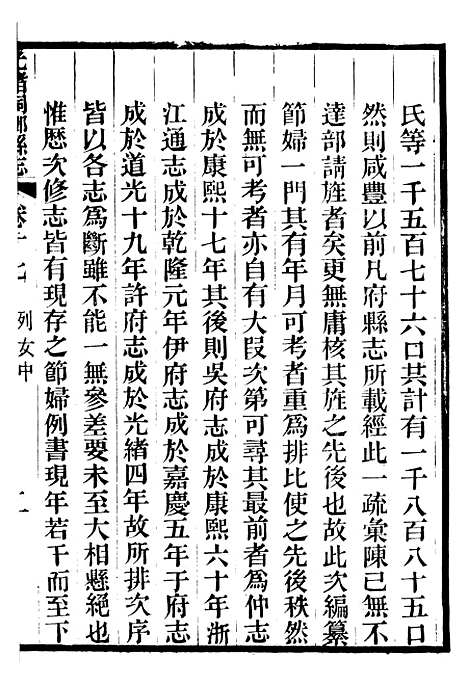 氏等一千五百七十六口共計有一千八百八十五口
然則咸豐以前凡府縣志所載經此一疏彙陳已無不
達部請旌者矣更無庸核其旌之先後也故此次編纂
節婦一門其有年月可考者重為排比使之先後秩然
而無可考者亦自有大段次第可尋其最前者為仲志
成於康熙十七年其後則吳府志成於康熙六十年浙
江通志成於乾隆元年伊府志成於嘉慶五年于府志
成於道光十九年許府志成於光緒四年故所排次序
皆以各志為斷雖不能一無參差要未至大相懸絕也
惟歷次修志皆有現存之節婦例書現年若干而至下
光緒桐鄉縣志 卷十七 列女中 二